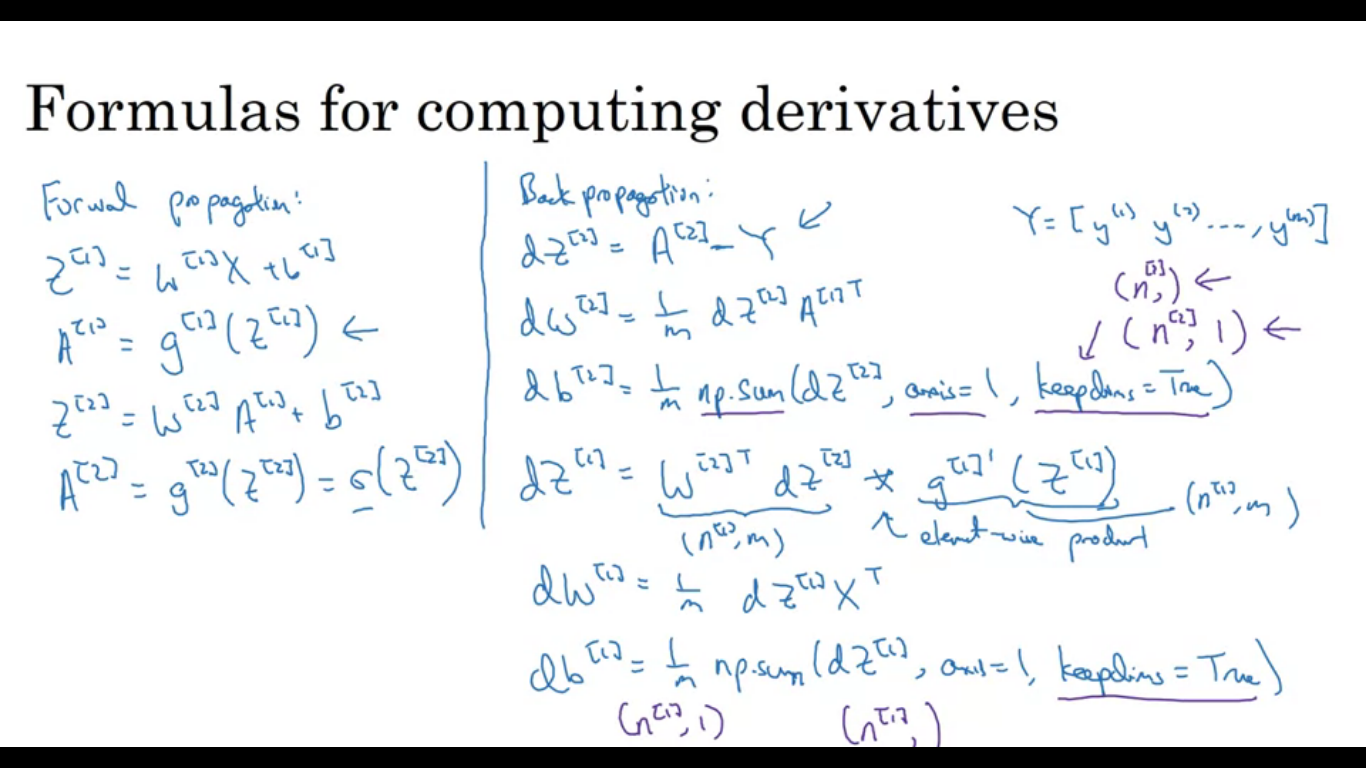 Formulas for computing derivatives
Forward propagation:
Z^[1] = W^[1] X + b^[1]
A^[1] = g^[1](Z^[1]) ←
Z^[2] = W^[2] A^[1] + b^[2]
A^[2] = g^[2](Z^[2]) = σ(Z^[2])
Back propagation:
dZ^[2] = A^[2] - Y ↙
dW^[2] = 1/m dZ^[2] A^[1]T
db^[2] = 1/m np.sum(dZ^[2], axis=1, keepdims=True)
dZ^[1] = W^[2]T dZ^[2] * g^[1]'(Z^[1])
(n^[1], m) ↖ element-wise product (n^[1], m)
dW^[1] = 1/m dZ^[1] X^T
db^[1] = 1/m np.sum(dZ^[1], axis=1, keepdims=True)
(n^[1], 1) (n^[1], )
Y = [y^(1) y^(2) ...., y^(m)]
(n^[2], ) ←
↙ (n^[2], 1) ←